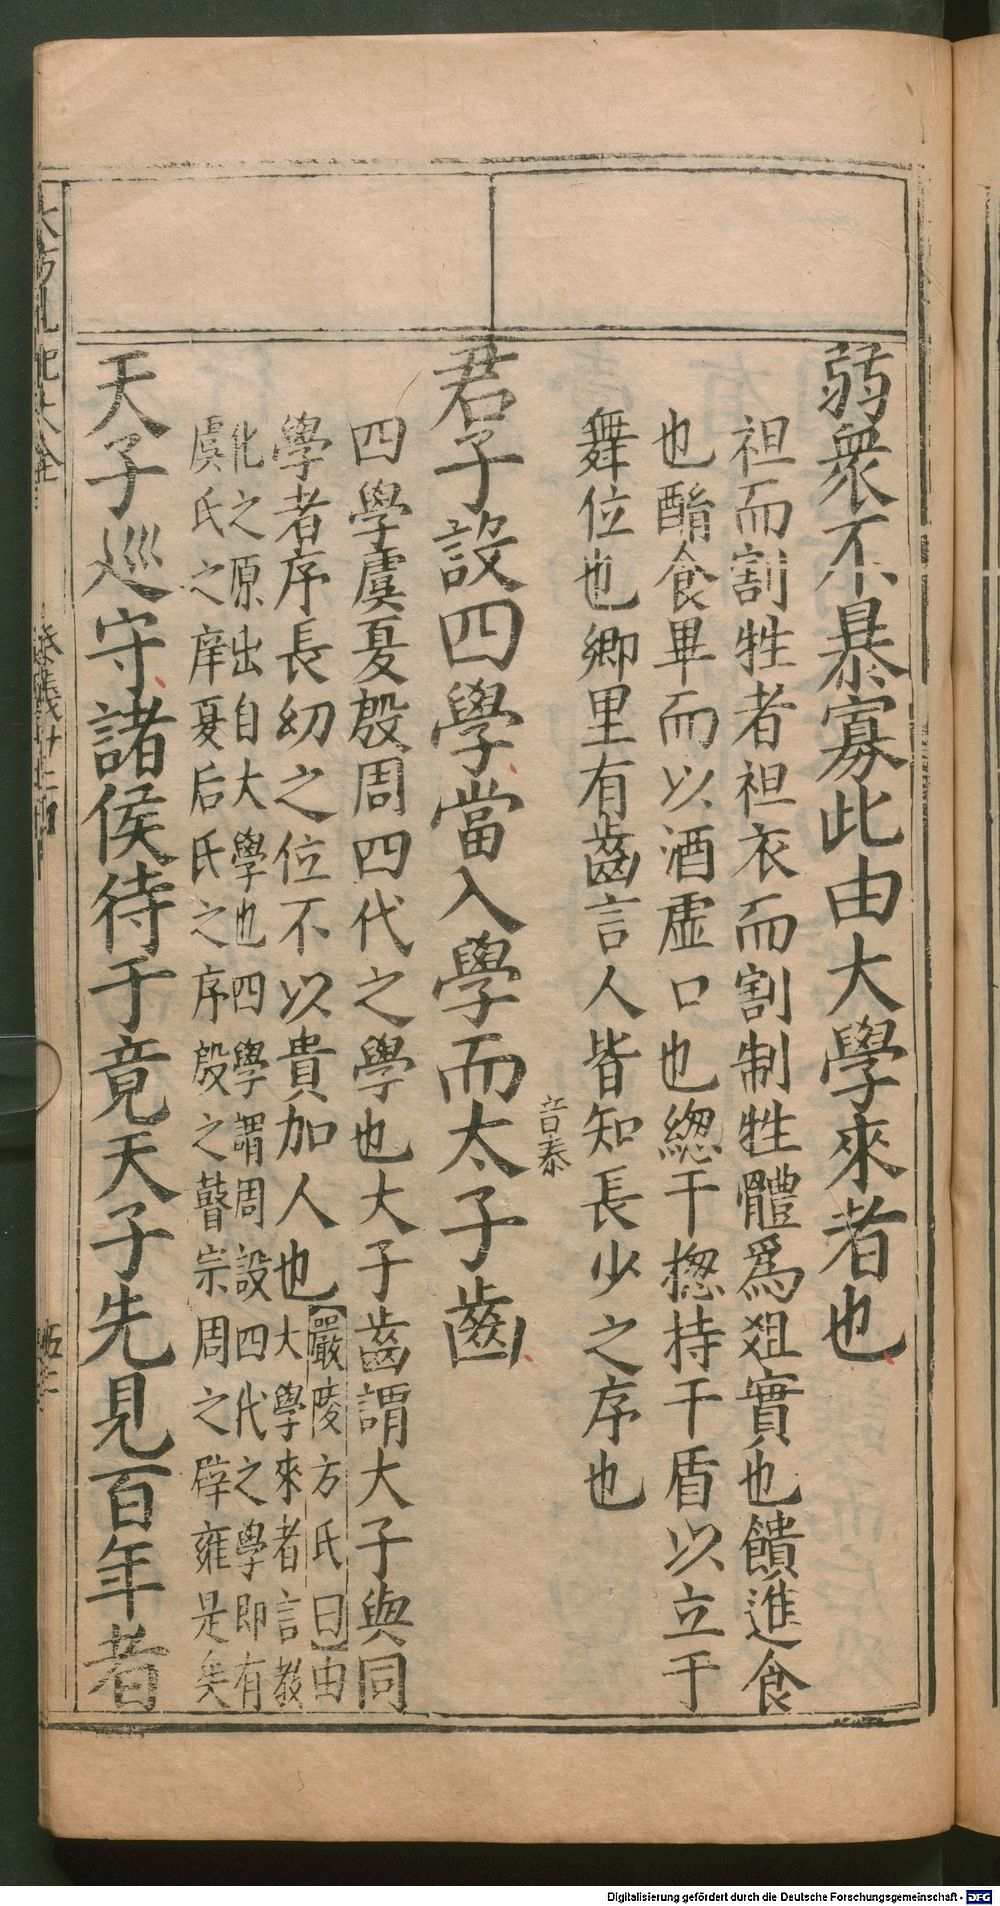 弱衆不暴寡此由大學來者也
袒而割牲者袒衣而割制牲體爲俎實也饋進食
也酳食畢而以酒虛口也緫干揔持干盾以立于
舞位也鄉里有齒言人皆知長少之序也
君子設四學當入學而太子齒
音泰
四學虞夏殷周四代之學也大子齒謂大子與同
學者序長幼之位不以貴加人也
【嚴陵方氏曰】由
大學來者言教
化之原出自大學也四學謂周設四代之學即有
虞氏之庠夏后氏之序殷之瞽宗周之辟雍是矣
天子巡守諸侯待于竟天子先見百年者
Digitalisierung gefördert durch die Deutsche Forschungsgemeinschaft - DFG